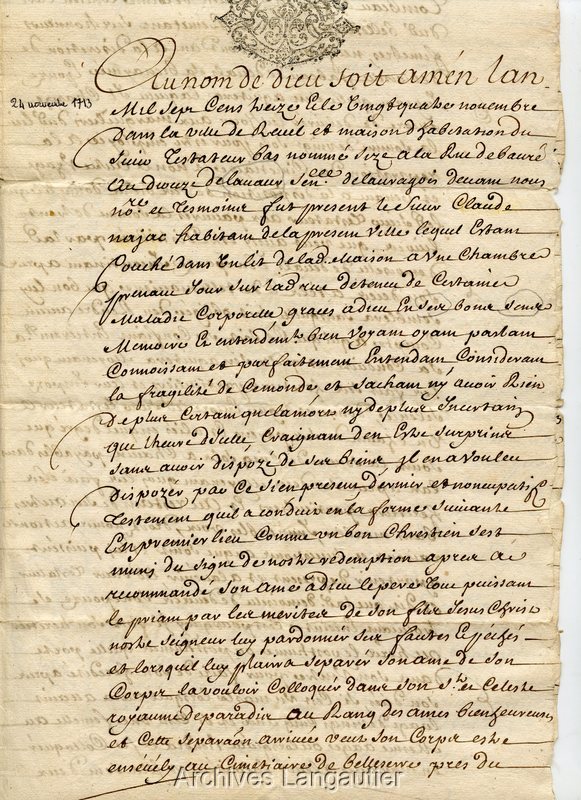 Au nom de dieu soit amén lan
24 novembre 1713
Mil sept Cens treize et le vingt quatre novembre
dans la ville de Revel et maison d habitation du
Sieur Testateur bas nommé size a la Rue de vauré
au dioceze de lavaur sen.elle de lauragois devant nous
no.re et tesmoins fut present le Sieur Claude
najac habitant de la present ville lequel Estant
Couché dans Un lit de lad. Maison a Une Chambre
prenant Jour sur lad rue detenu de Certaine
Maladie Corporelle graces a dieu En ses bons sens
Memoire Et entendem.t bien voyant oyant parlant
Connoissant et parfaitement Entendant Considerant
la fragilité de Ce monde et sachant ny avoir Rien
de plus Certain que la mort ny de plus Incertain
que l heure dicelle Craignant den Estre surprins
sans avoir dispozé de ses biens Il en a voulu
dispozer par Ce sien present dernier et noncupatif
Testement quil a conduit en la forme suivante
En premier lieu Comme un bon Chrestien sest
muni du signe de nostre redemption apres a
recommandé son ame a dieu le pere tout puissant
le priant par les merites de son fils Jesus Christ
nostre seigneur luy pardonner ses fautes Et pechés
et lorsquil luy plaira separer son ame de son
Corps la vouloir Colloquer dans son s.t et Celeste
royaume de paradis au Rang des ames bienheureuses
et Cette separaôn arrivée veut son Corps estre
ensevely au Cimetiaire de belleserre pres du
Archives Langautier